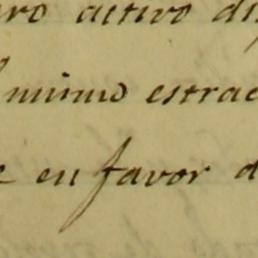 ro activo di
mismo estrac
en favor d